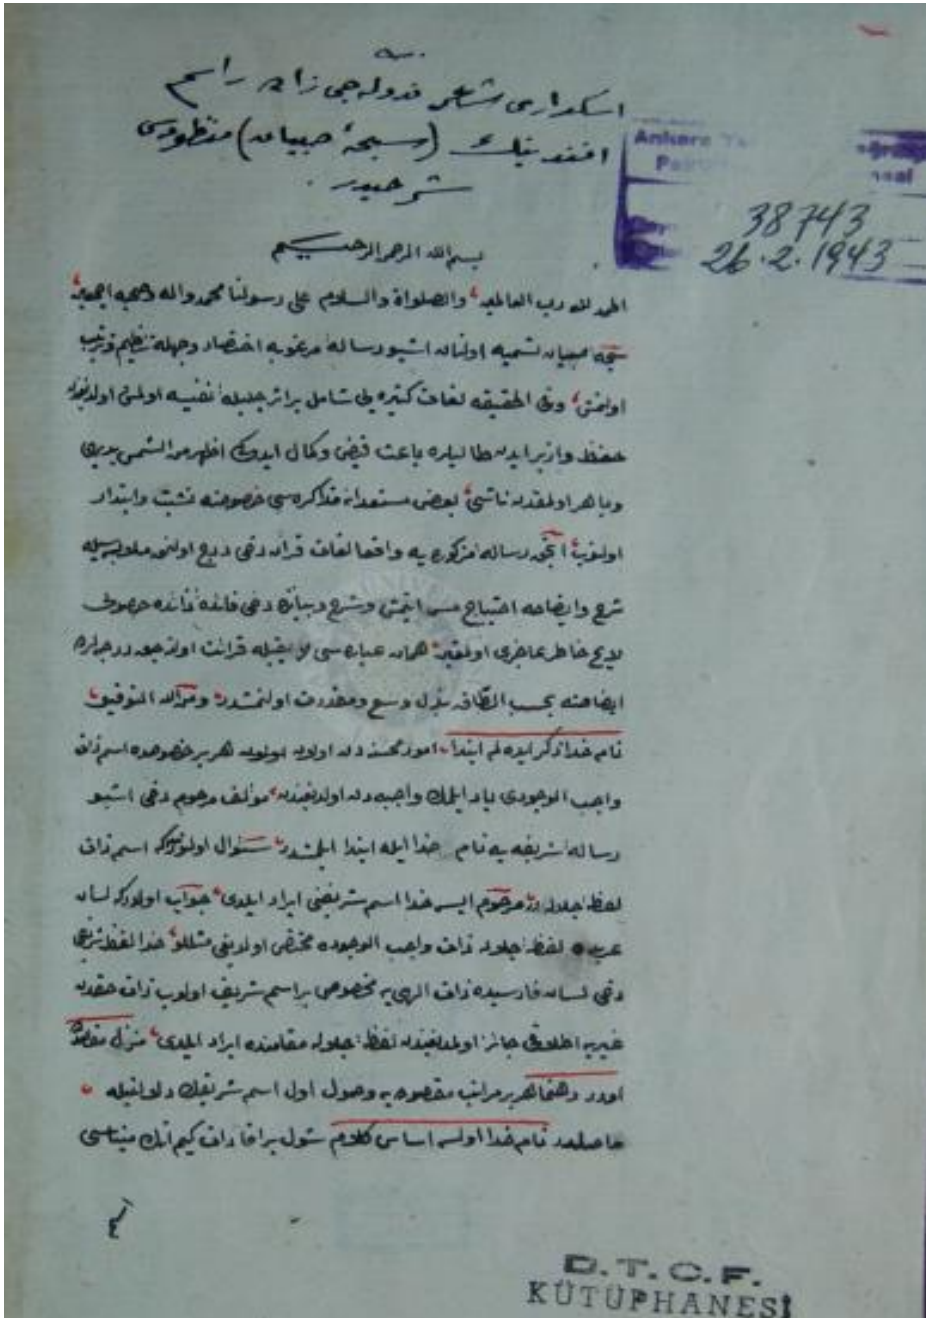 اسكدارى شاعر فدوله جى زاده راسم
افندينك (سبحۀ صبيان) منظومه سى
شرحيدر
Ankara
38743
26.2.1943
بسم الله الرحمن الرحيم
الحمد لله رب العالمين والصلواة والسلام على رسولنا محمد واله وصحبه اجمعين
سبحۀ صبيان تسميه اولنان اشبو رسالۀ مرغوبه اختصار وجهله تنظيم وترتيب
اولنمش وفى الحقيقه لغات كثيره يى شامل بر اثر جليلۀ نفيسه اولمش اولديغندن
حفظ وازبر ايدن طالبلره باعث فيض وكمال ايدوكى اظهر من الشمس بديدى
وباهر اولمقدن ناشى بعض مستعدانه مذاكره سى خصوصنه تشبث وابتدار
اولنوب انجق رسالۀ مذكوره يه واقعا لغات قران دخى درج اولنمه ملابسه سيله
شرح وايضاحه احتياج مس ايتمش وشرح وبيانده دخى فائده زائده حصولى
لايح خاطر عاجزى اولمغين همان عباره سى لايقيله قرائت اولنه جق درجه لرده
ايضاحنه بحسب الطاقه بذل وسع ومقدرت اولنمشدر ومن الله التوفيق
نام خدا ذكر ايده لم ابتدا امور محسنه دن اولان اولوب هر بر خصوصده اسم ذات
واجب الوجودى ياد ايلمك واجبه دن اولديغندن مؤلف مرحوم دخى اشبو
رسالۀ شريفه يه نام خدا ايله ابتدا ايلمشدر سؤال اولنوركه اسم ذات
لفظۀ جلاله در مرحوم ايسه خدا اسم شريفنى ايراد ايلدى جواب اولدركه لسان
عربده لفظۀ جلاله ذات واجب الوجوده مختص اولديغى مثللو خدا لفظ شريفى
دخى لسان فارسيده ذات الهى يه مخصوص بر اسم شريف اولوب ذات حقدن
غيريه اطلاقى جائز اولمديغندن لفظۀ جلاله مقامنده ايراد ايلدى منزل مقصوده
اودر رهنما هر بر مراتب مقصوده يه وصول اول اسم شريفك دلالتيله
حاصلدر نام خدا اولسه اساس كلام شول بر افاده كيم انك مبناسى
D.T.C.F.
KÜTÜPHANESİ